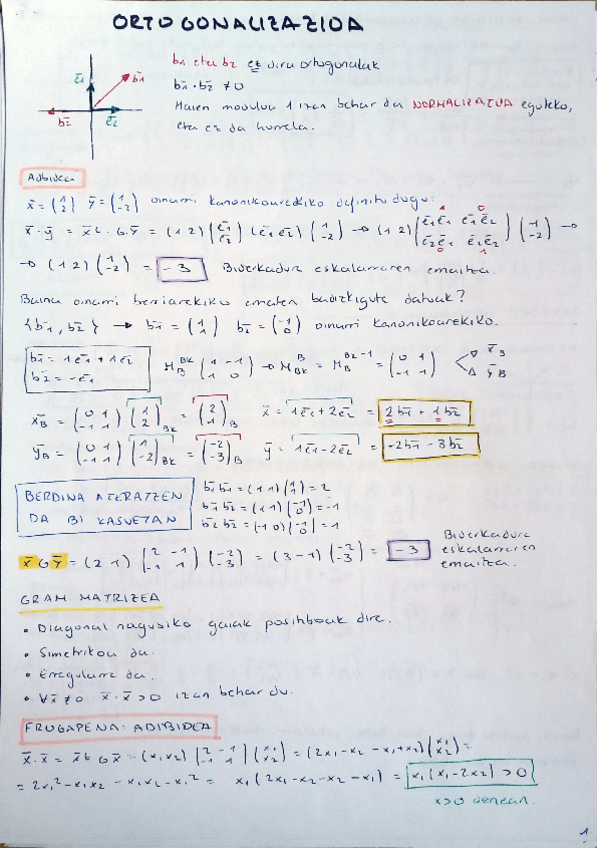 ORTOGONALIZAZIOA
ē1 b̄1 b̄2 ē2
b̄1 eta b̄2 ez dira ortogonalak
b̄1 · b̄2 ≠ 0
Haien modulua 1 izan behar da NORMALIZATUA egoteko,
eta ez da horrela.
ADIBIDEA
x̄ = (1 2) ȳ = (1 -2) oinarri kanonikoarekiko definitu dugu:
x̄ · ȳ = x̄t · G ȳ = (1 2) (ē1 ē2) (ē1 ē2) (1 -2) → (1 2) (ē1ē1 ē1ē2 ē2ē1 ē1ē2) (1 -2) →
→ (1 2) (1 -2) = -3 Biderkadura eskalarraren emaitza.
Baina oinarri berriarekiko ematen badizkigute datuak?
{b̄1, b̄2} → b̄1 = (1 1) b̄2 = (-1 0) oinarri kanonikoarekiko.
b̄1 = 1ē1 + 1ē2
b̄2 = -ē1
M B BK (1 -1 1 0) → M BK B = M B BK -1 = (0 1 -1 1) x̄B ȳB
x̄B = (0 1 -1 1) (1 2)BK = (2 1)B x̄ = 1ē1 + 2ē2 = 2b̄1 + 1b̄2
ȳB = (0 1 -1 1) (1 -2)BK = (-2 -3)B ȳ = 1ē1 - 2ē2 = -2b̄1 - 3b̄2
BERDINA ATERATZEN
DA BI KASUETAN
b̄1 b̄1 = (1 1) (1 1) = 2
b̄1 b̄2 = (1 1) (-1 0) = -1
b̄2 b̄2 = (-1 0) (-1 0) = 1
x̄ G ȳ = (2 1) (2 -1 -1 1) (-2 -3) = (3 -1) (-2 -3) = -3 Biderkadura eskalarraren emaitza.
GRAM MATRIZEA
• Diagonal nagusiko gaiak positiboak dira.
• Simetrikoa da.
• Erregularra da.
• ∀x̄ ≠ 0 x̄ · x̄ > 0 izan behar du.
FROGAPENA: ADIBIDEA
x̄ · x̄ = x̄t G x̄ = (x1 x2) (2 -1 -1 1) (x1 x2) = (2x1 - x2 - x1 + x2) (x1 x2) =
= 2x1² - x1x2 - x1x2 - x1² = x1 (2x1 - x2 - x2 - x1) = x1 (x1 - 2x2) > 0
x > 0 denean.
1